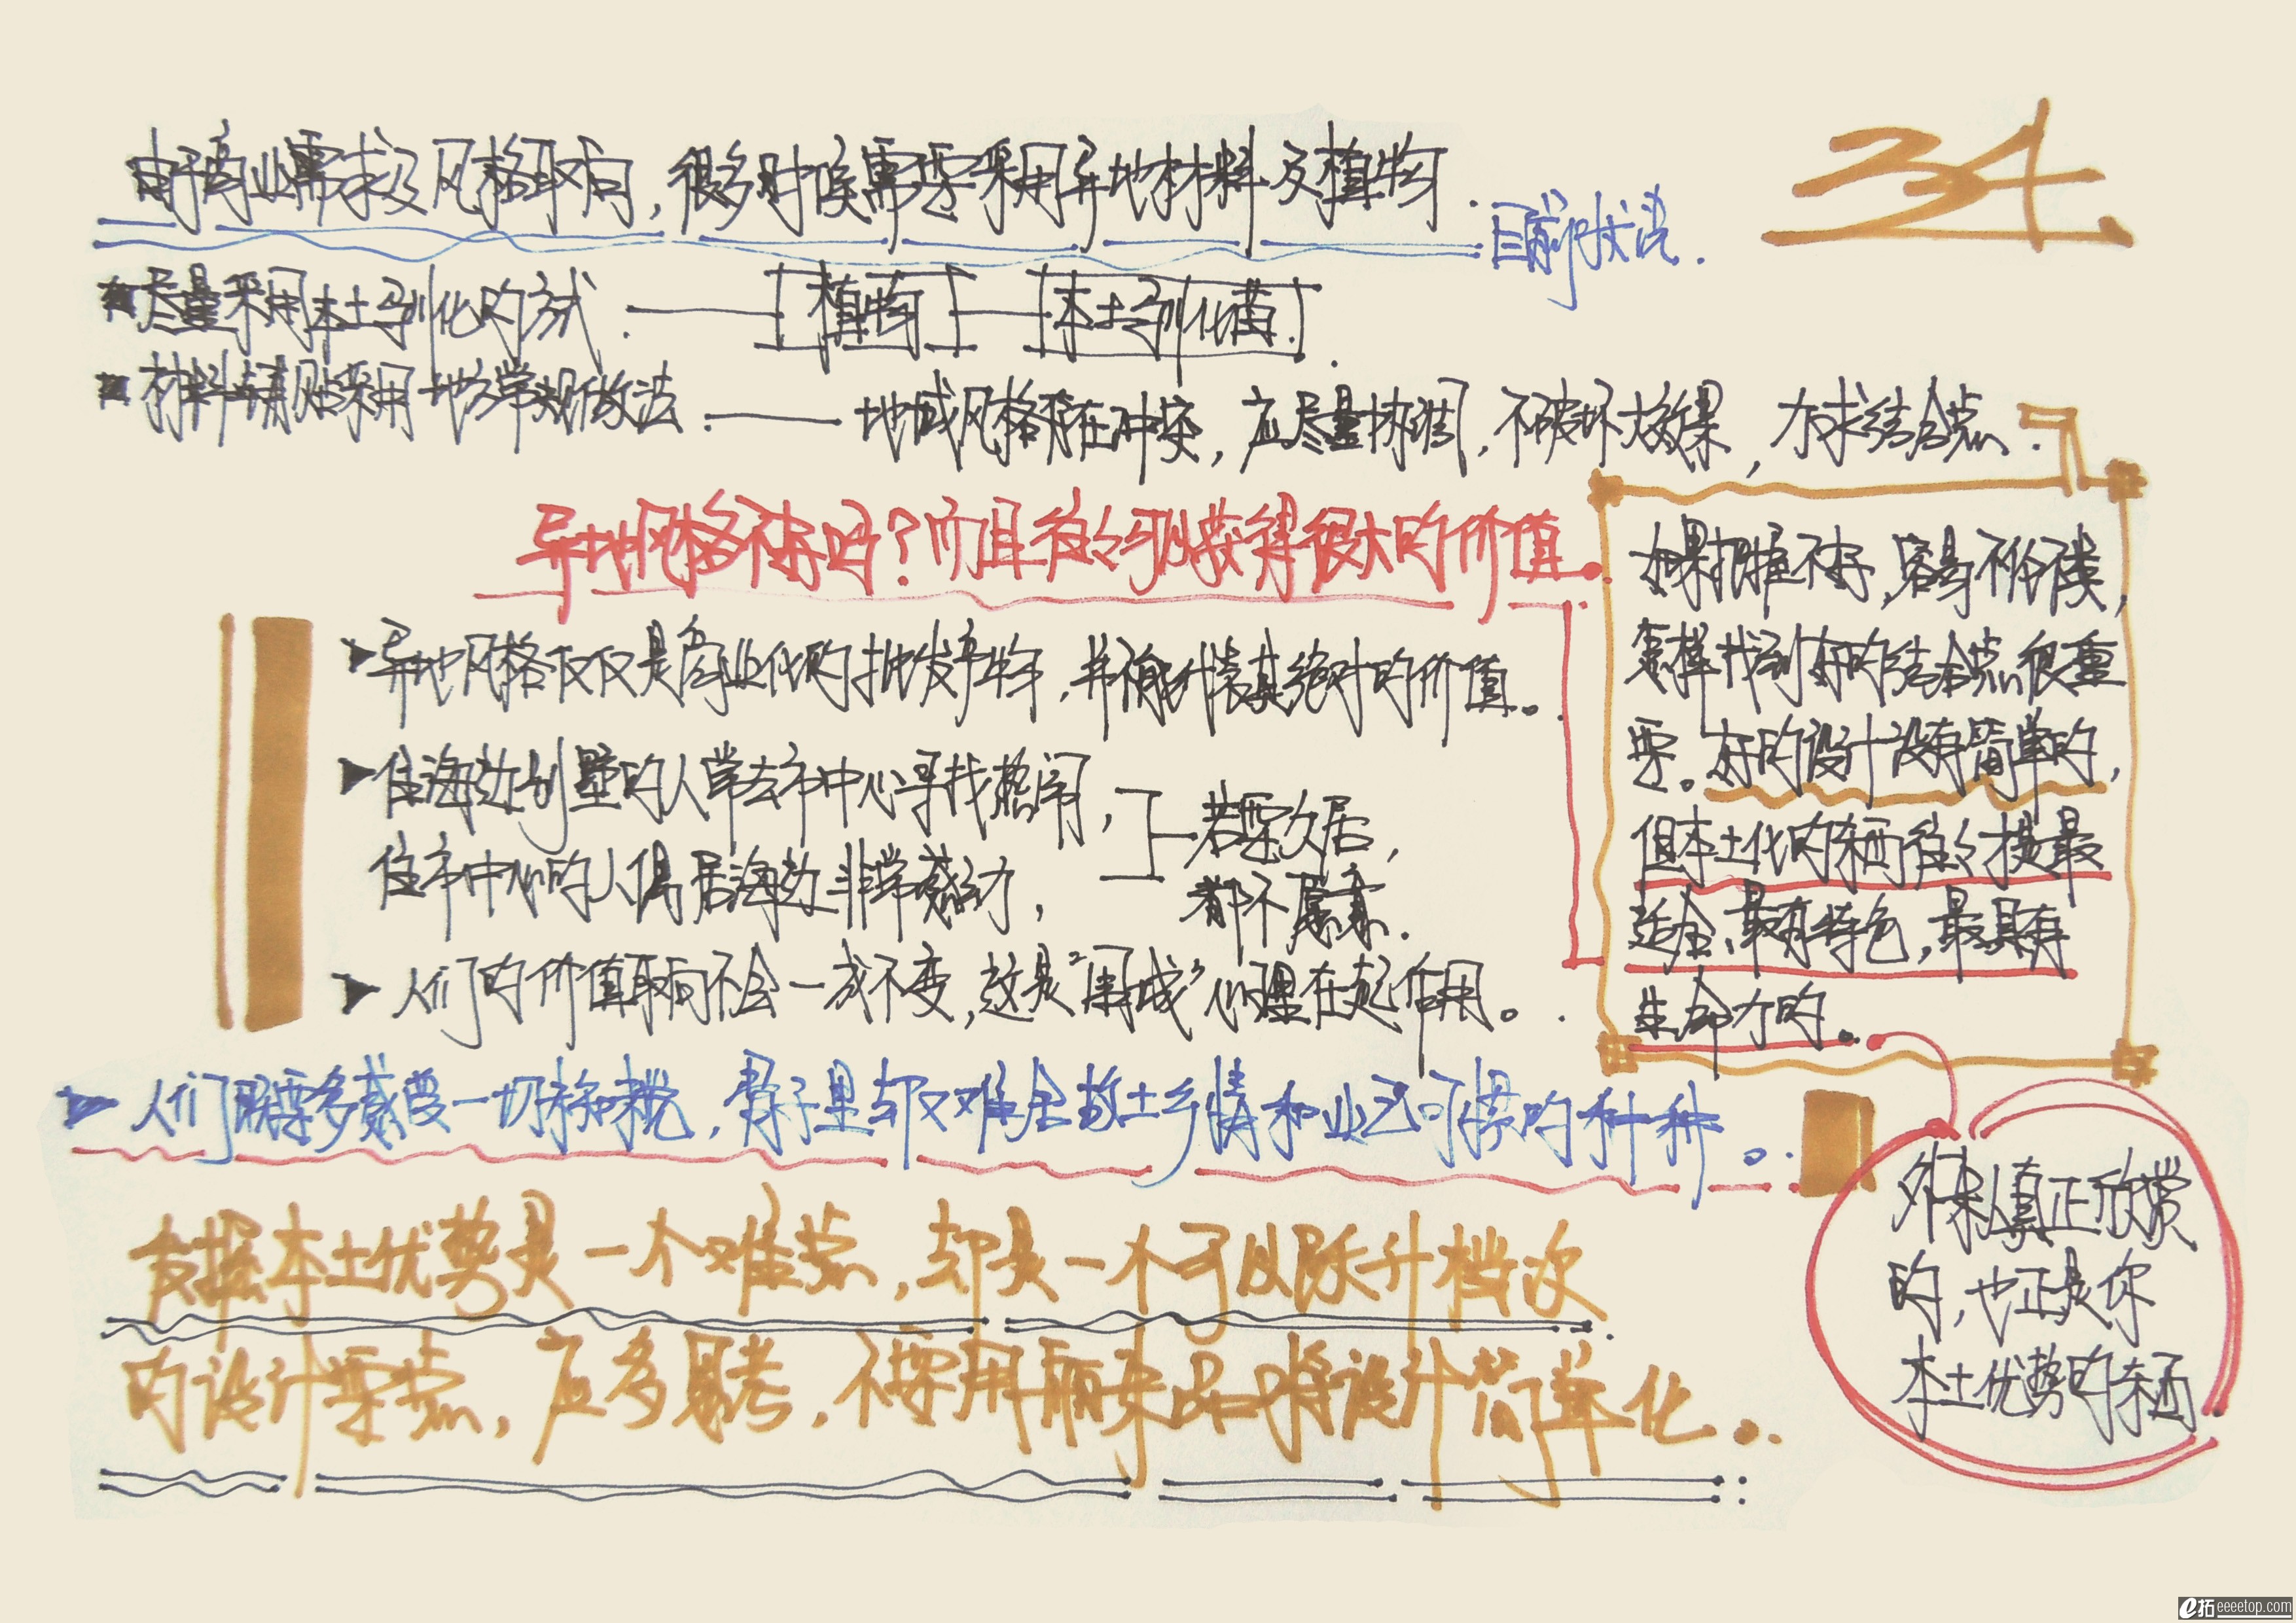 34
由于商业需求及风格取向，很多时候需要采用异地材料及植物.
目前状况.
尽量采用本土驯化的方式.——[植物]—[本土驯化苗].
材料铺贴采用地方常规做法.——地域风格存在冲突，应尽量协调，不破坏大效果，力求结合点.
异地风格不好吗？而且往往可以获得很大的价值.
异地风格仅仅是商业化的批发产物，并不能代表其绝对的价值。
住海边别墅的人常去市中心寻找热闹，
住市中心的人偶居海边非常感动，
若要久居，
都不愿意.
人们的价值取向不会一成不变，这是“围城”心理在起作用。
如果把握不好，容易不伦不类，
怎样找到好的结合点很重
要。好的设计没有简单的，
但本土化的东西往往才是最
适合、最有特色，最具有
生命力的。
人们需要多感受一切称赞，骨子里却又难舍故土乡情和业已习惯的种种。
外来人真正欣赏
的，也正是你
本土优势的东西
发掘本土优势是一个难点，却是一个可以跃升档次
的设计要点，应多思考，不要用舶来品将设计简单化..
e拓 eeeetop.com